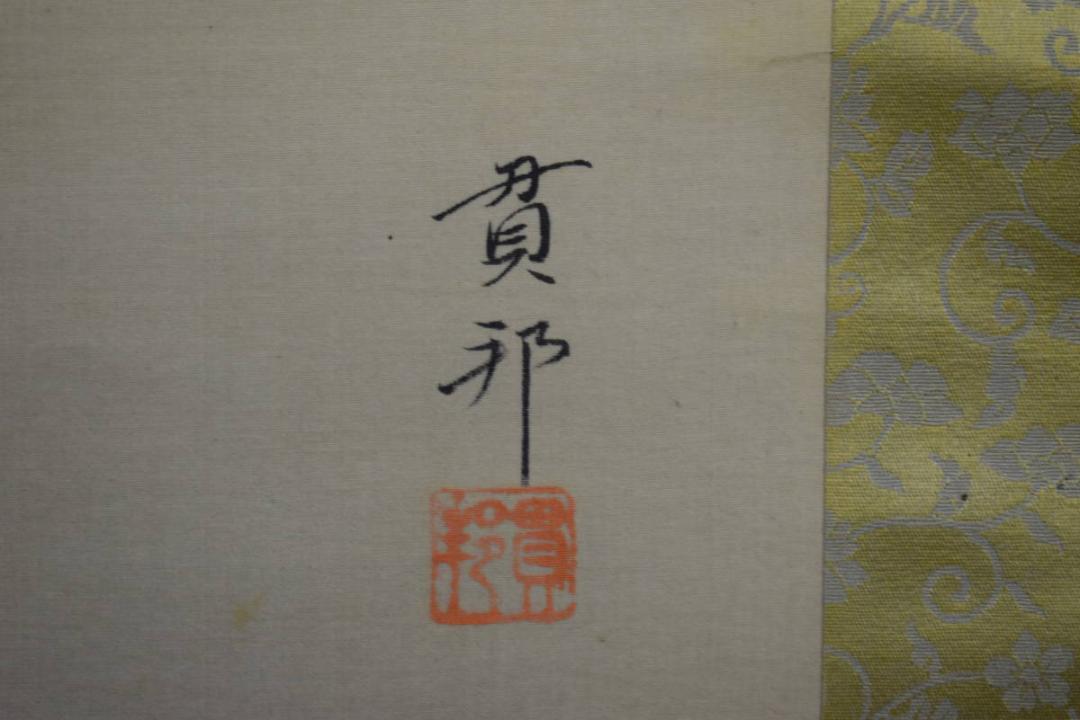 貫邦
貫邦